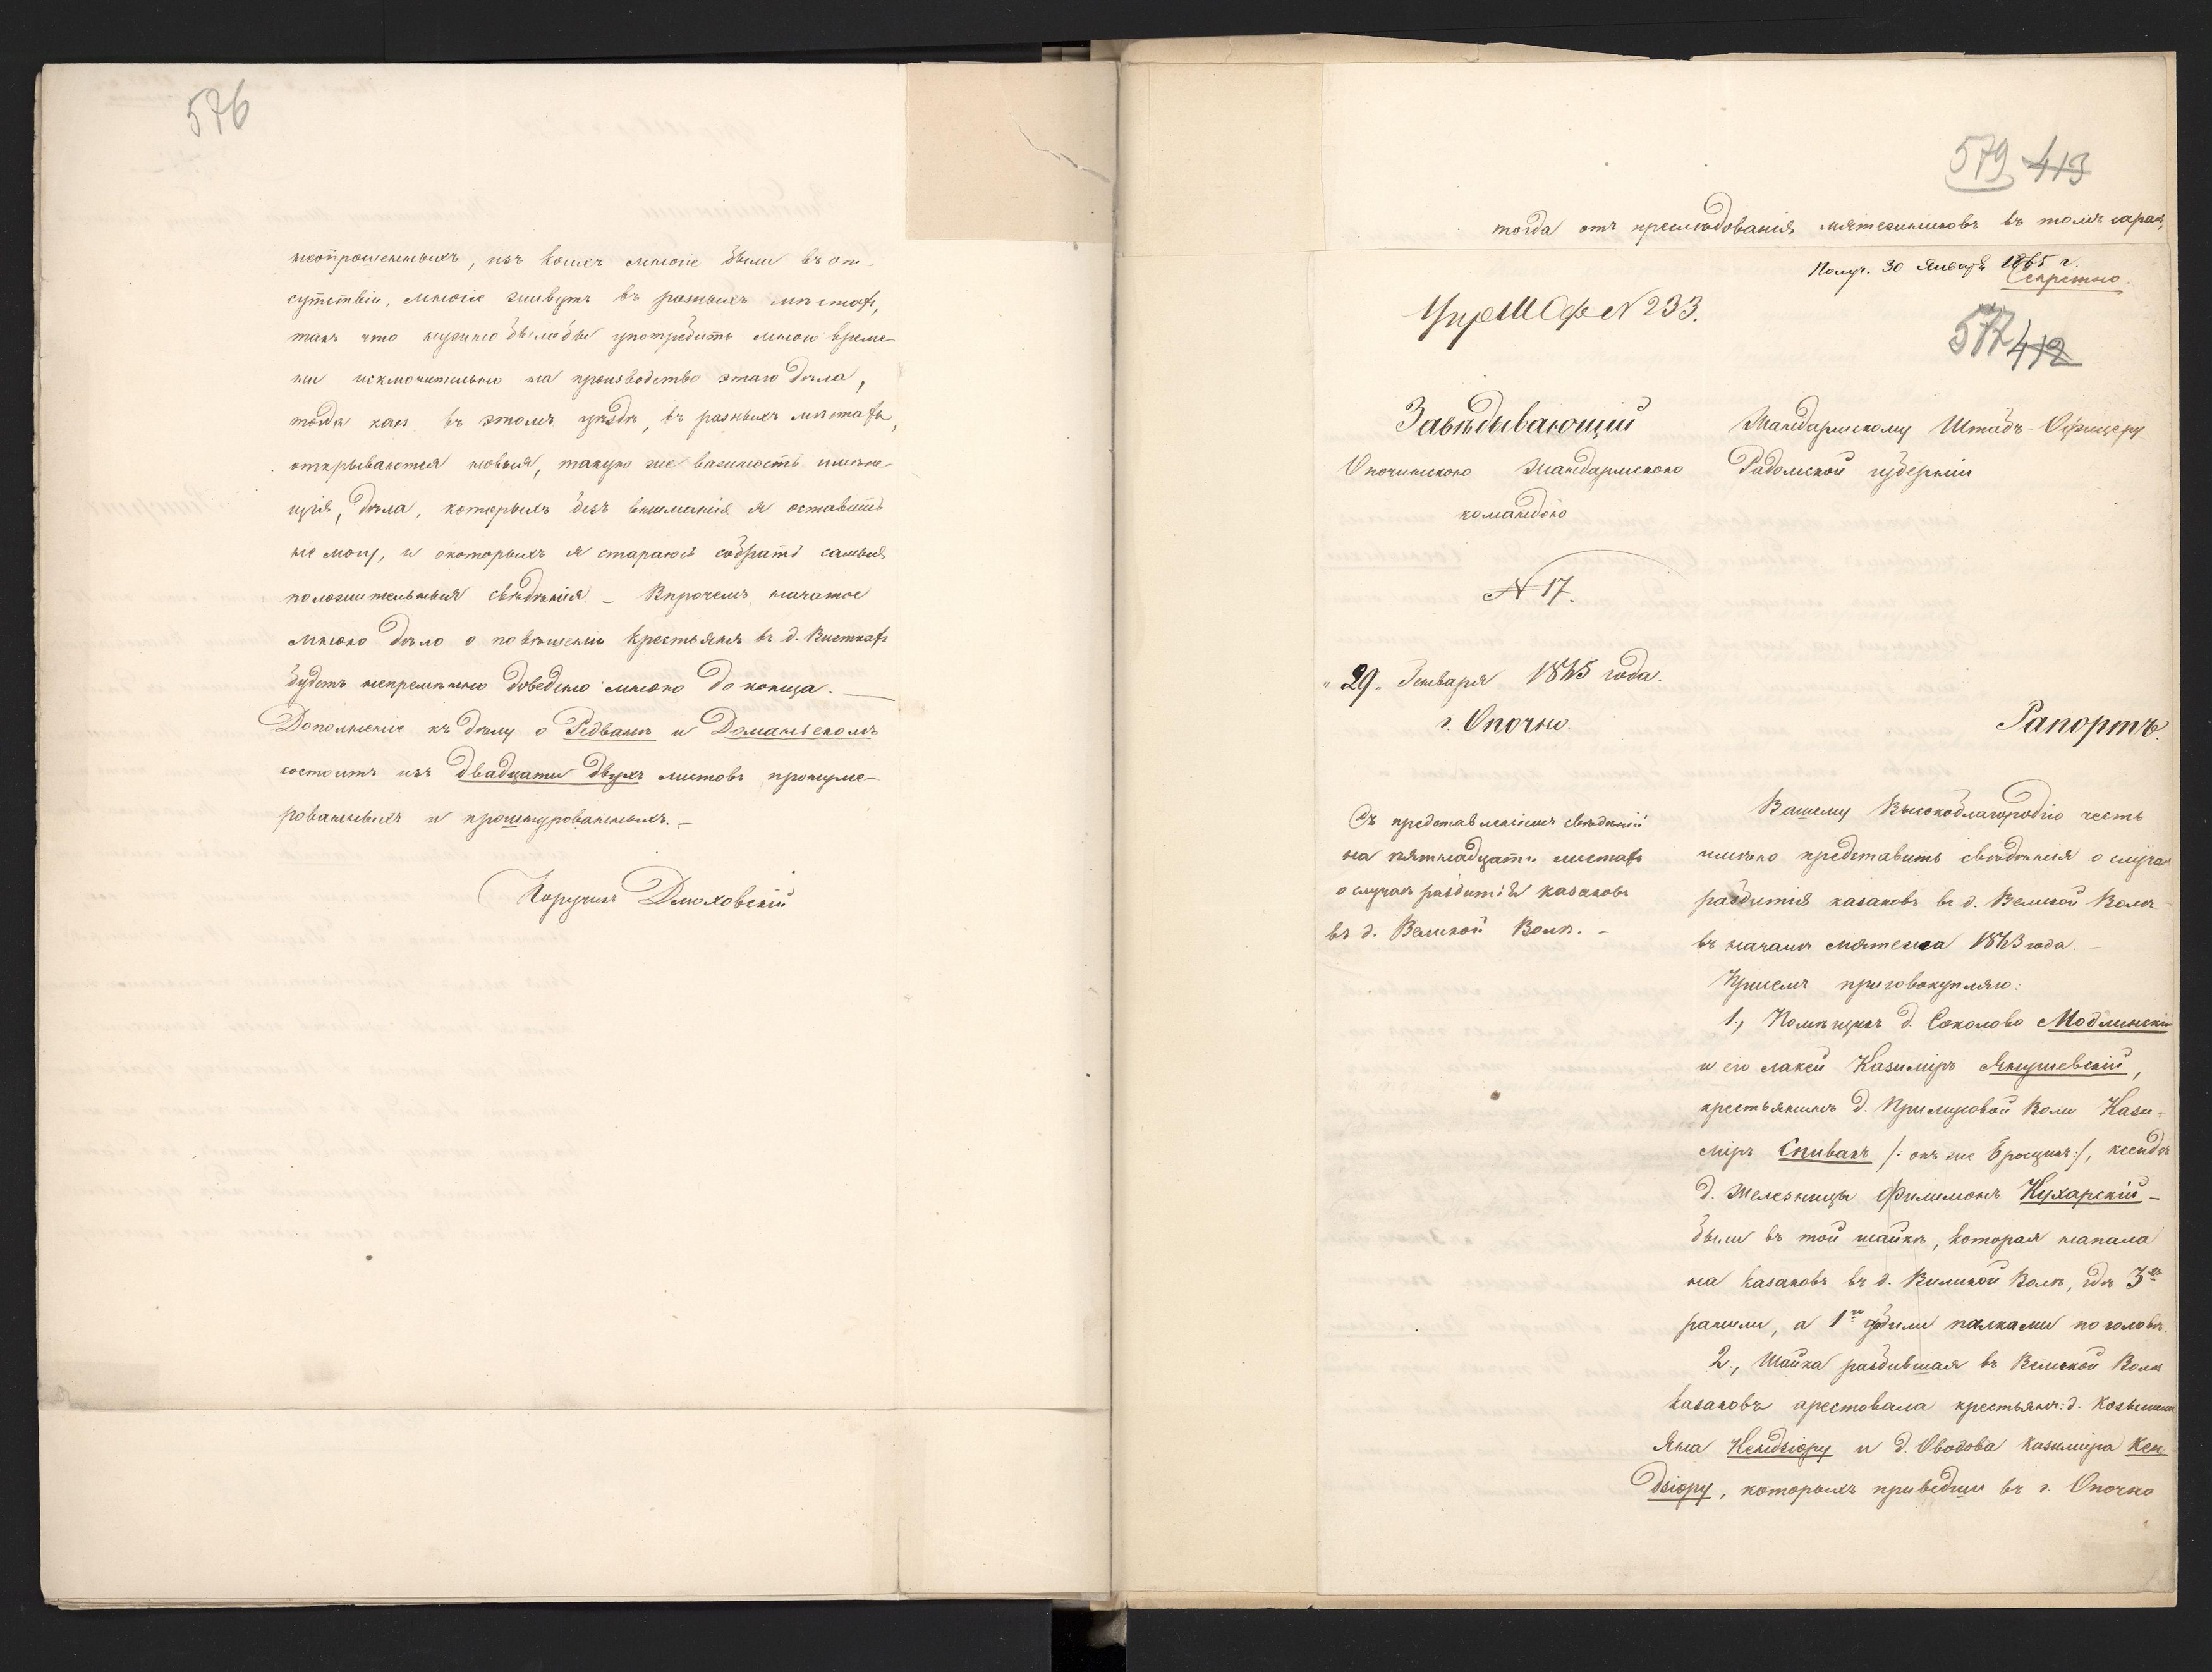 576
неопрошенныхъ, изъ коихъ многіе были въ от-
сутствіи, многіе живутъ въ разныхъ мѣстахъ,
такъ что нужно было бы употребить много време-
ни исключительно на производство этаго дѣла,
тогда какъ въ этомъ уѣздѣ, въ разныхъ мѣстахъ,
открываются новыя, такую же важность имѣю-
щія, дѣла, которыхъ безъ вниманія я оставить
не могу, и о которыхъ я стараюсь собрать самыя
положительныя свѣдѣнія. – Впрочемъ, начатое
мною дѣло о повѣшеніи крестьянъ въ д. Висткахъ
будетъ непремѣнно доведено мною до конца. –
Дополненіе къ дѣлу о Редванѣ и Доманьскомъ
состоитъ изъ двадцати двухъ листовъ пронуме-
рованныхъ и прошнурованныхъ. –
Поручикъ Дмоховскій
579 413
тогда отъ преслѣдованія мятежниковъ въ томъ сараѣ,
Получ. 30 Января 1865 г.
Секретно.
№ 233.
577 412
Завѣдывающій
Опочинскою жандармскою
командою
№ 17.
"29" Генваря 1865 года.
г. Опочно.
Жандармскому Штабъ-Офицеру
Радомской губерніи
Рапортъ.
Съ представленіемъ свѣдѣній
на пятнадцати листахъ
о случаѣ разбитія казаковъ
въ д. Великой Воли. –
Вашему Высокоблагородію честь
имѣю представить свѣдѣнія о случаѣ
разбитія казаковъ въ д. Великой Волѣ
въ началѣ мятежа 1863 года. –
При семъ присовокупляю:
1., Помѣщикъ д. Соколово Модлинскій
и его лакей Казиміръ Янушевскій,
крестьянинъ д. Примусовой Воли Кази-
міръ Спивакъ /: онъ же Брощикъ:/, ксендзъ
д. Железницы Филимонъ Кухарскій –
были въ той шайкѣ, которая напала
на казаковъ въ д. Великой Волѣ, гдѣ 3хъ
ранили, а 1го убили палками по головѣ.
2., Шайка разбившая въ Великой Волѣ
казаковъ арестовала крестьянъ: д.
Яна Кендзіору и д. Оводова Казиміра Кен-
дзіору, которыхъ приведши въ г. Опочно